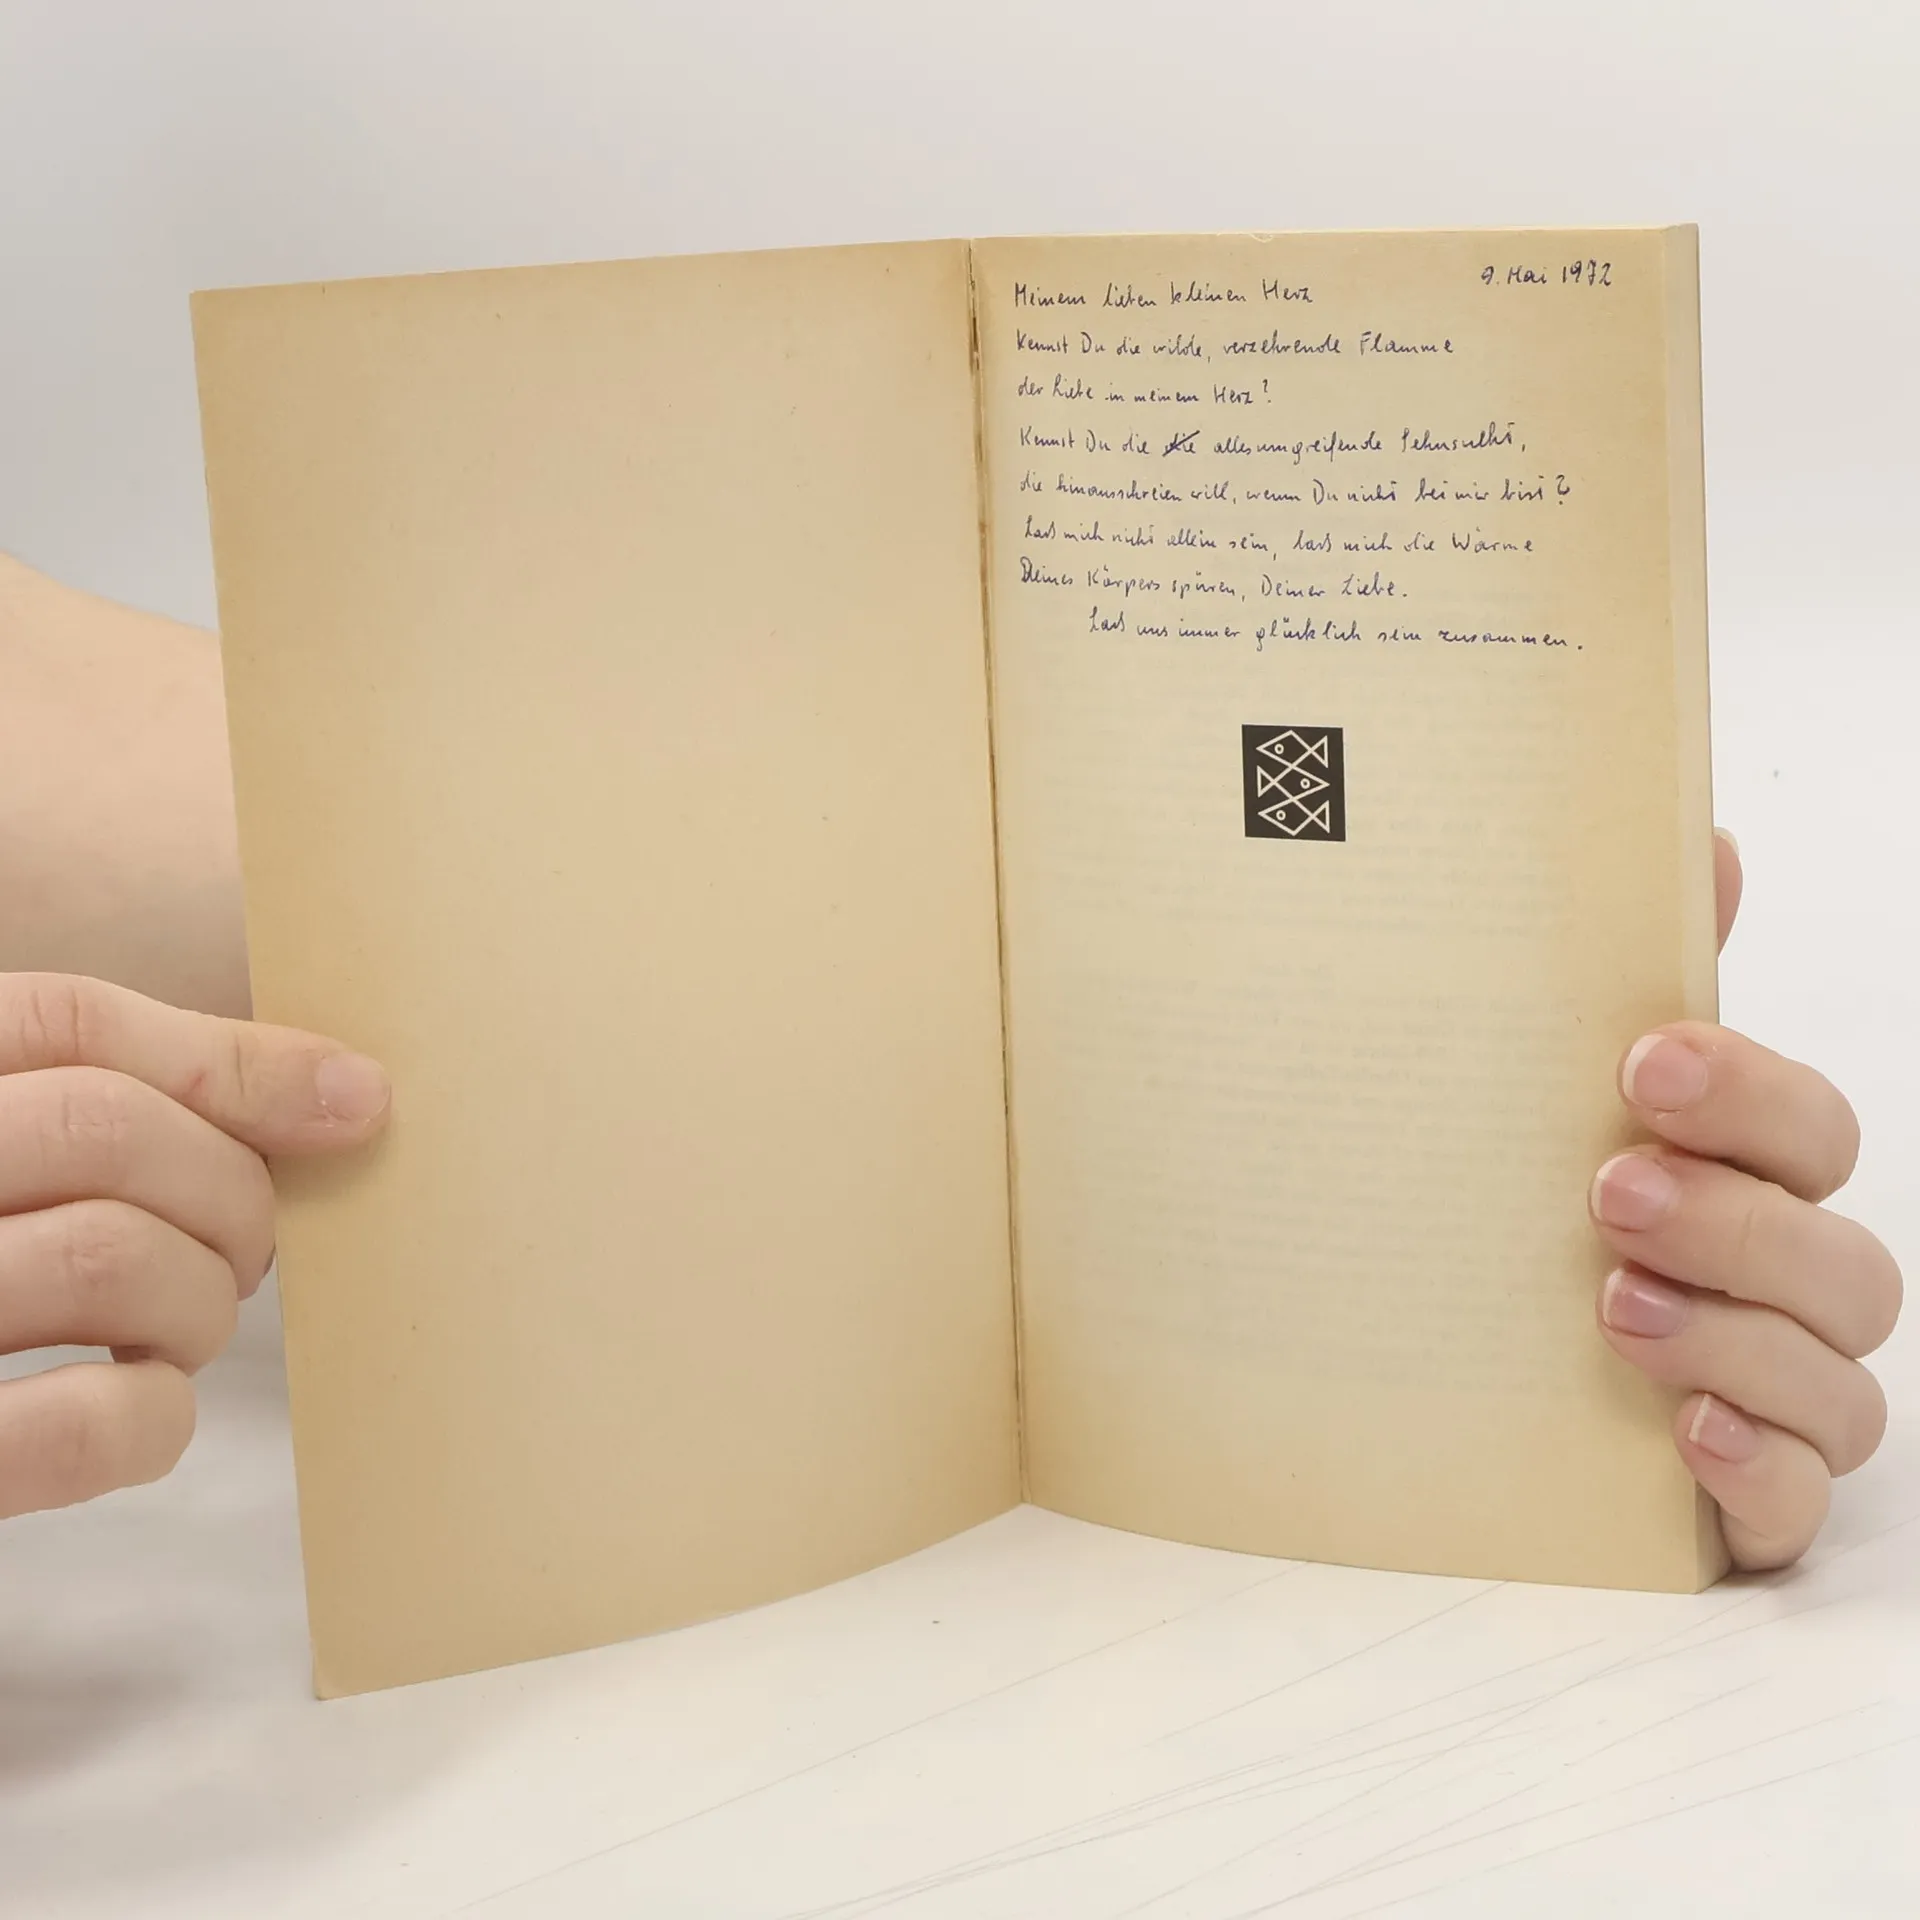 9. Mai 1972
Meinem lieben kleinen Herz
Kennst Du die wilde, verzehrende Flamme
der Liebe in meinem Herz?
Kennst Du die die allesumgreifende Sehnsucht,
die hinausschreien will, wenn Du nicht bei mir bist?
Laß mich nicht allein sein, laß mich die Wärme
Deines Körpers spüren, Deiner Liebe.
Laß uns immer glücklich sein zusammen.